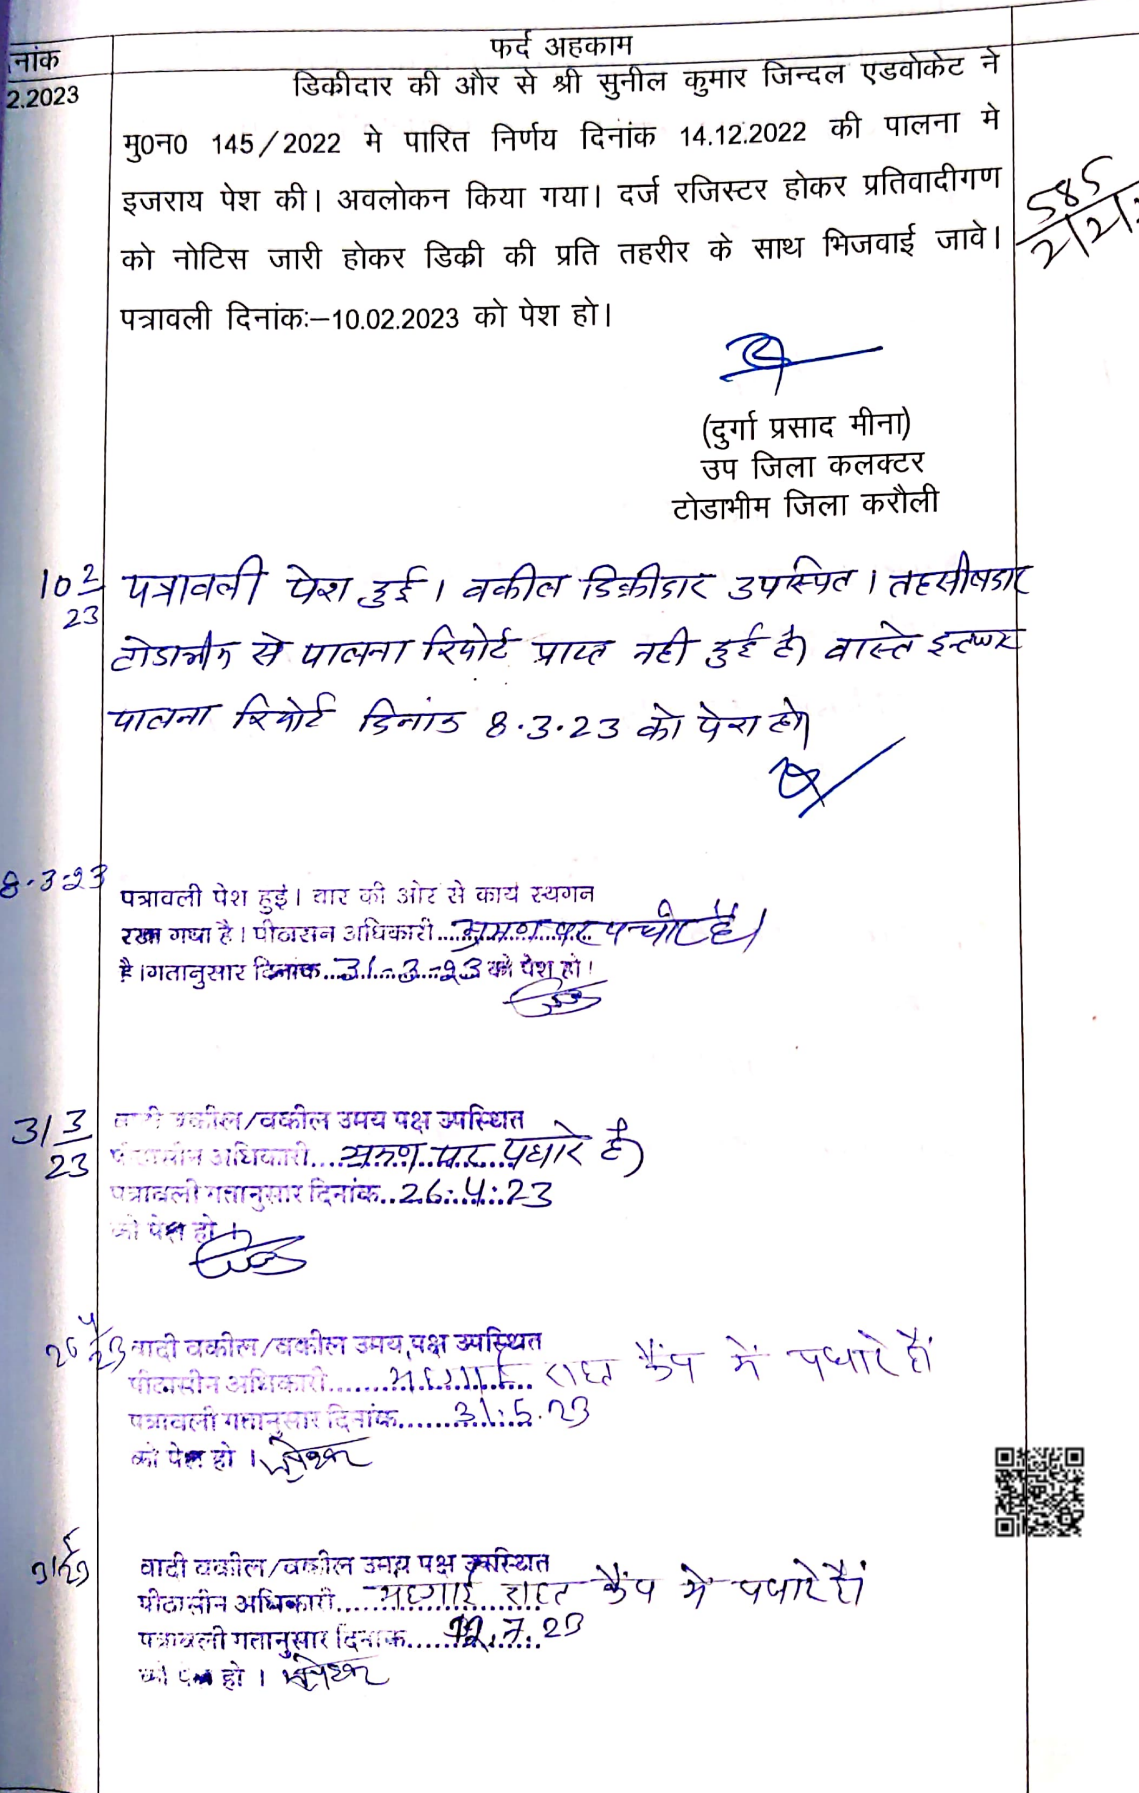 नांक
फर्द अहकाम
2.2023
डिकीदार की और से श्री सुनील कुमार जिन्दल एडवोकेट ने
मु0न0 145/2022 मे पारित निर्णय दिनांक 14.12.2022 की पालना मे
इजराय पेश की। अवलोकन किया गया। दर्ज रजिस्टर होकर प्रतिवादीगण
को नोटिस जारी होकर डिकी की प्रति तहरीर के साथ भिजवाई जावे।
पत्रावली दिनांकः–10.02.2023 को पेश हो।
585
2/2/
(दुर्गा प्रसाद मीना)
उप जिला कलक्टर
टोडाभीम जिला करौली
10 2/23
पत्रावली पेश हुई। वकील डिक्रीदार उपस्थित। तहसीलदार
टोडाभीम से पालना रिपोर्ट प्राप्त नही हुई है। वास्ते इन्तजार
पालना रिपोर्ट दिनांक 8.3.23 को पेश हो।
8-3-23
पत्रावली पेश हुई। बार की ओर से कार्य स्थगन
रखा गया है। पीठासीन अधिकारी भ्रमण पर है।
है।गतानुसार दिनांक 31-3-23 को पेश हो।
31 3/23
वादी वकील/वकील उभय पक्ष उपस्थित
पीठासीन अधिकारी भ्रमण पर पधारे है।
पत्रावली गतानुसार दिनांक 26.4.23
को पेश हो।
26 4/23
वादी वकील/वकील उभय पक्ष उपस्थित
पीठासीन अधिकारी महगाई राहत कैंप में पधारे हैं।
पत्रावली गतानुसार दिनांक 31.5.23
को पेश हो।
31 5/23
वादी वकील/वकील उभय पक्ष उपस्थित
पीठासीन अधिकारी महगाई राहत कैंप में पधारे हैं।
पत्रावली गतानुसार दिनांक 12.7.23
को पेश हो।